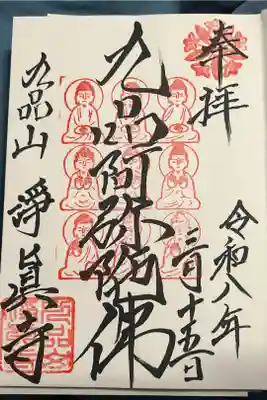 奉拝
令和八年
三月十五日
九品阿弥陀佛
九品山 淨眞寺